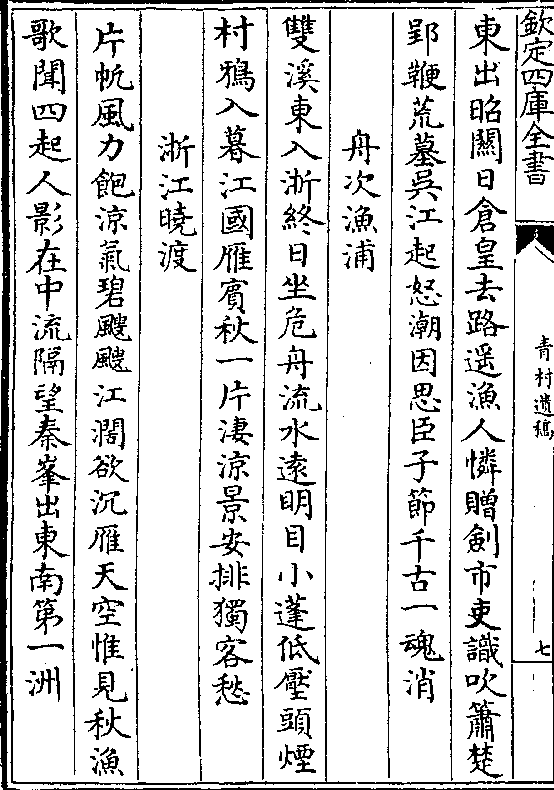 欽定四庫全書
青村遺稿
七
東出昭關日倉皇去路遥漁人憐贈劍市吏識吹簫楚
郢鞭荒墓吳江起怒潮因思臣子節千古一魂消
舟次漁浦
雙溪東入浙終日坐危舟流水遠明目小蓬低壓頭煙
村鴉入暮江國雁賓秋一片淒涼景安排獨客愁
浙江曉渡
片帆風力飽涼氣碧颼颼江濶欲沉雁天空惟見秋漁
歌聞四起人影在中流隔望秦峯出東南第一洲